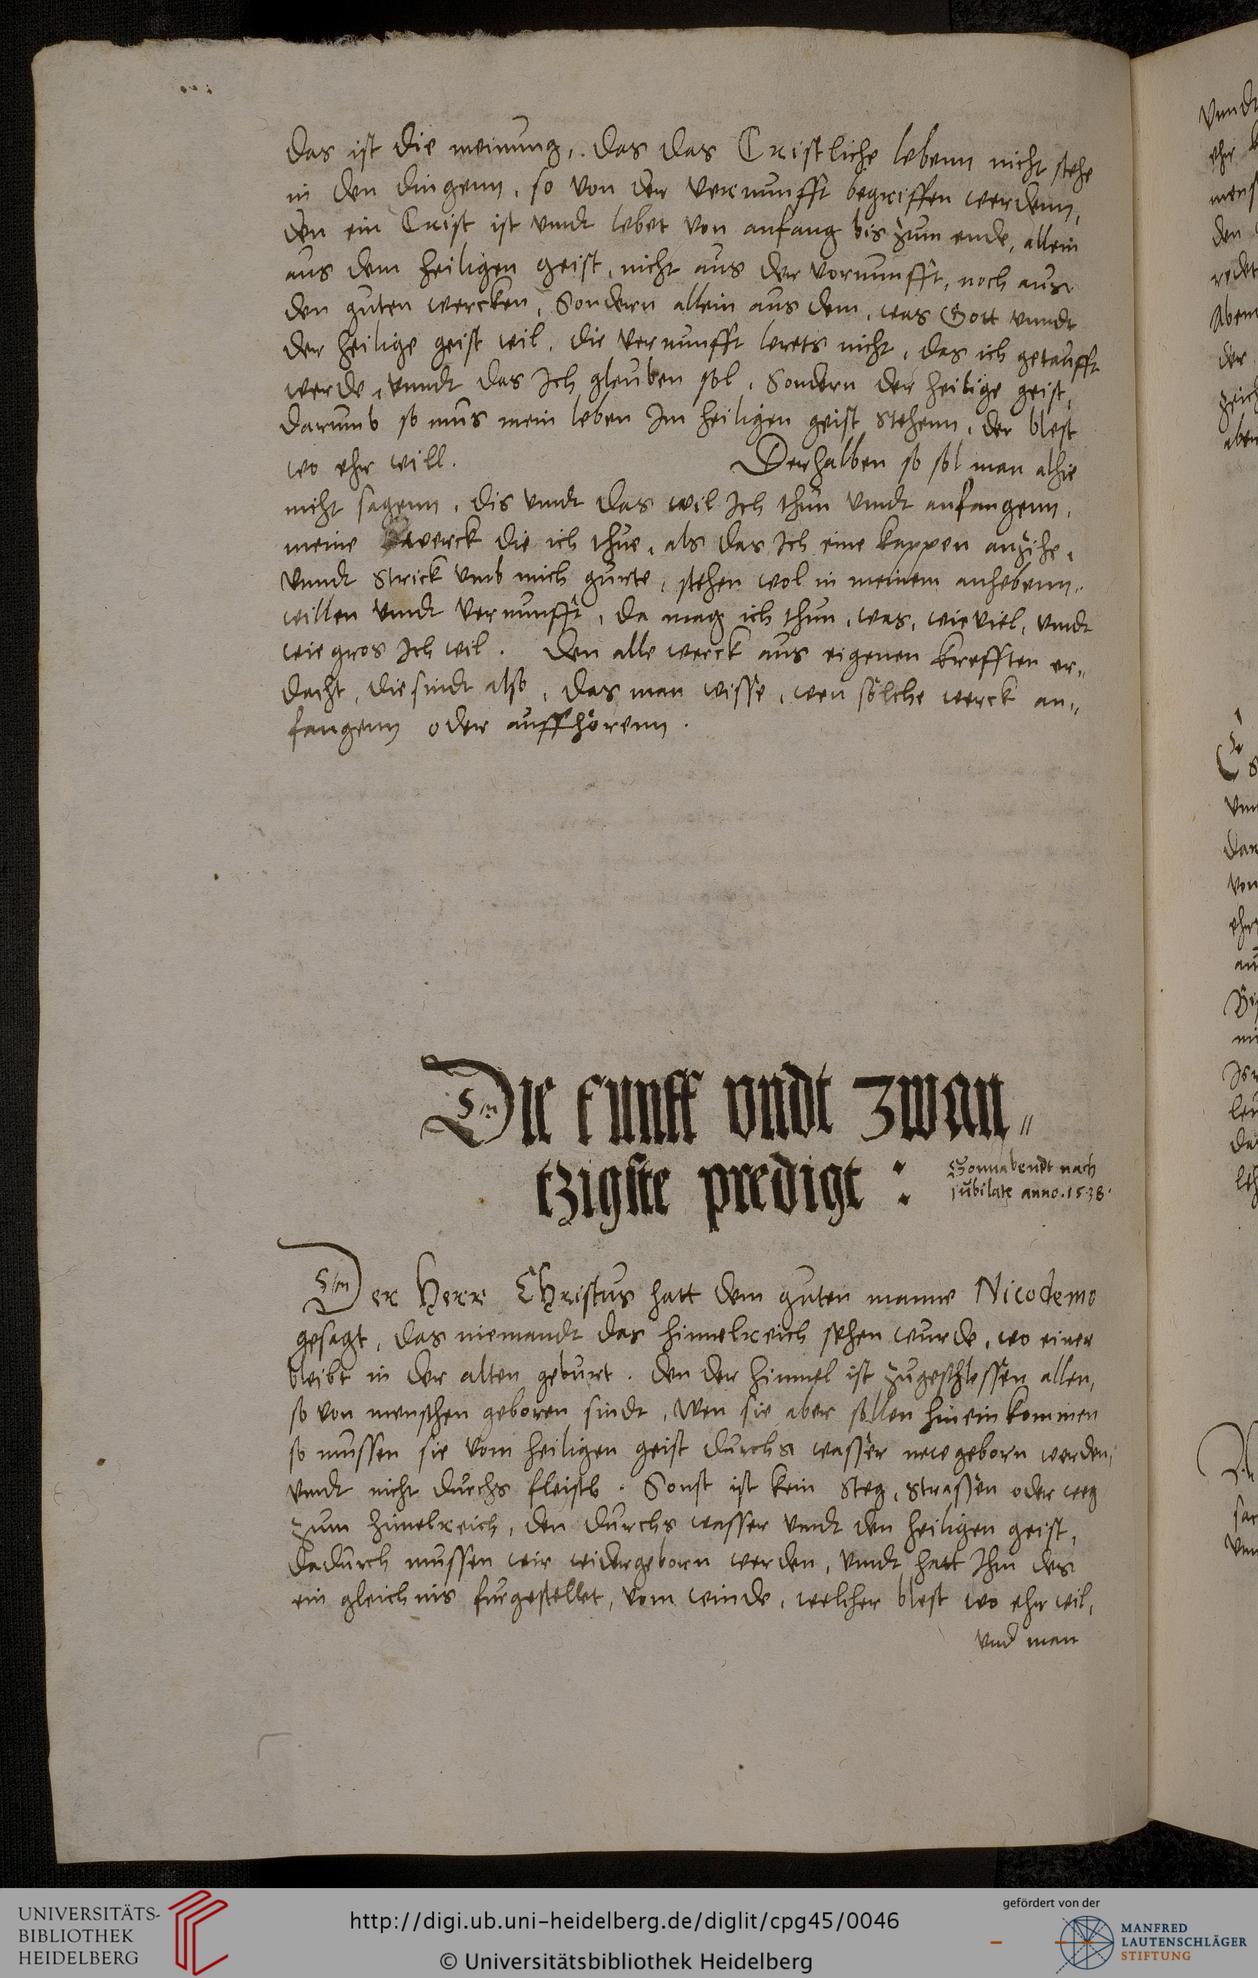 das ist die meinung, das das Cristliche lebenn nicht stehe
in den dingenn, so von der vernunfft begriffen werdenn,
den ein Crist ist vndt lebet von anfang bis zum ende, allein
aus dem heiligen geist, nicht aus der vornunfft, noch aus
den guten wercken, Sondern allein aus dem, was Gott vnndt
der heilige geist wil. die vernunfft lerets nicht, das ich getaufft
werde, vnndt das Ich gleuben sol, Sondern der heilige geist,
darumb so mus mein leben Im heiligen geist stehenn, der blest
wo ehr will. Derhalben so sol man alhie
nicht sagenn, dis vndt das wil Ich thun vndt anfangenn,
meine werck die ich thue, als das Ich eine kappen anzihe,
vnndt strick vmb mich gurte, stehen wol in meinem anhebenn,
willen vndt vernunfft, da mag ich thun, was, wie viel, vndt
wie gros Ich wil. Den alle werck aus eigenen krefften er„
dacht, die sindt also, das man wisse, wen sölche werck an„
fangenn oder auffhörenn.
Die funff vndt zwan„
tzigste predigt :
Sonnabendt nach
Jubilate anno. 1538.
Der Herr Christus hatt dem guten manne Nicodemo
gesagt, das niemandt das himelreich sehen wurde, wo einer
bleibt in der alten geburt. den der himmel ist zugeschlossen allen,
so von menschen geboren sindt, Wen sie aber sollen hinein kommen
so mussen sie vom heiligen geist durchs wasser new geborn werden,
vndt nicht durchs fleisch. Sonst ist kein steg, strassen oder weg
zum himelreich, den durchs wasser vndt den heiligen geist,
dadurch mussen wir widergeborn werden, vndt hatt Ihm des
ein gleichnis furgestellet, vom winde, welcher blest wo ehr wil,
vnd man
UNIVERSITÄTS-
BIBLIOTHEK
HEIDELBERG
http://digi.ub.uni-heidelberg.de/diglit/cpg45/0046
© Universitätsbibliothek Heidelberg
gefördert von der
MANFRED
LAUTENSCHLÄGER
STIFTUNG